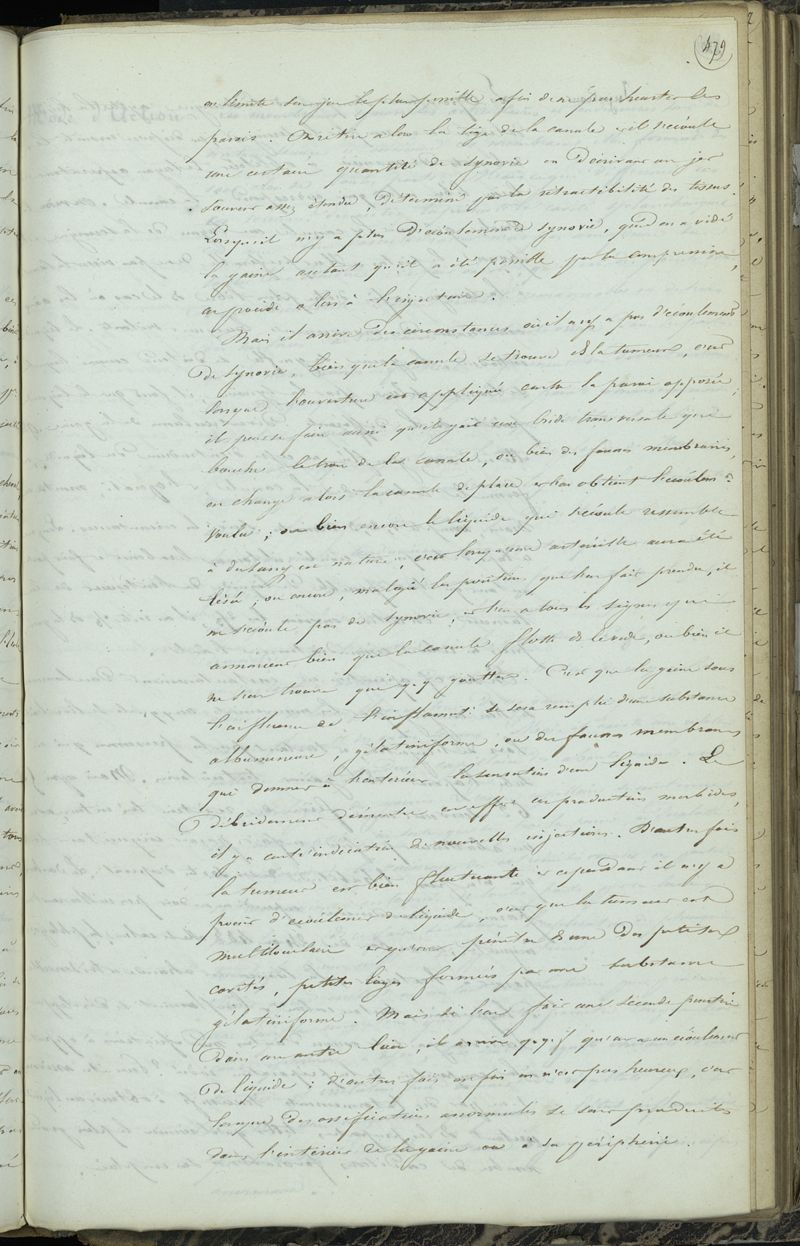 479
on limite son jeu le plus possible afin de ne pas heurter les
parois. On retire alors la tige de la canule et il s'écoule
une certaine quantité de synovie en décrivant un jet
souvent assez étendu, déterminé par la rétractibilité des tissus.
Lorsqu'il n'y a plus d'écoulement de synovie, quand on a vidé
la gaine autant qu'il a été possible par la compression,
on procède alors à l'injection.
Mais il arrive des circonstances où il n'y a pas d'écoulement
de synovie, bien que la canule se trouve ds la tumeur, c'est
lorsque l'ouverture est appliquée contre la paroi opposée,
il peut se faire aussi qu'il y ait une bride transversale qui
bouche le trou de la canule, ou bien des fausses membranes,
on change alors la canule de place et l'on obtient l'écoulem^t
voulu ; ou bien encore le liquide qui s'écoule ressemble
à du sang en nature, c'est lorsqu'une artériole aura été
lésée ; ou encore, malgré les positions que l'on fait prendre, il
ne s'écoule pas de synovie, et l'on a tous les signes qui
annoncent bien que la canule flotte ds le vide, ou bien il
ne s'en trouve que q.q. gouttes. C'est que la gaine sous
l'influence de l'inflammat. se sera remplie d'une substance
albumineuse, gélatiniforme, ou des fausses membranes
qui donnent à l'extérieur la sensation d'un liquide. Le
débridement démontre en effet ces productions morbides,
il y a contr'indication de nouvelles injections. D'autres fois
la tumeur est bien fluctuante et cependant il n'y a
point d'écoulement de liquide, c'est que la tumeur est
multiloculaire et qu'on pénètre ds une des petites
cavités, petites loges formées par une substance
gélatiniforme. Mais si l'on fait une seconde ponction
dans un autre lieu, il arrive q.q.f. qu'on a un écoulement
de liquide ; d'autres fois on n'est pas heureux, c'est
lorsque des ossifications anormales se sont produites
dans l'intérieur de la gaine ou à sa périphérie.